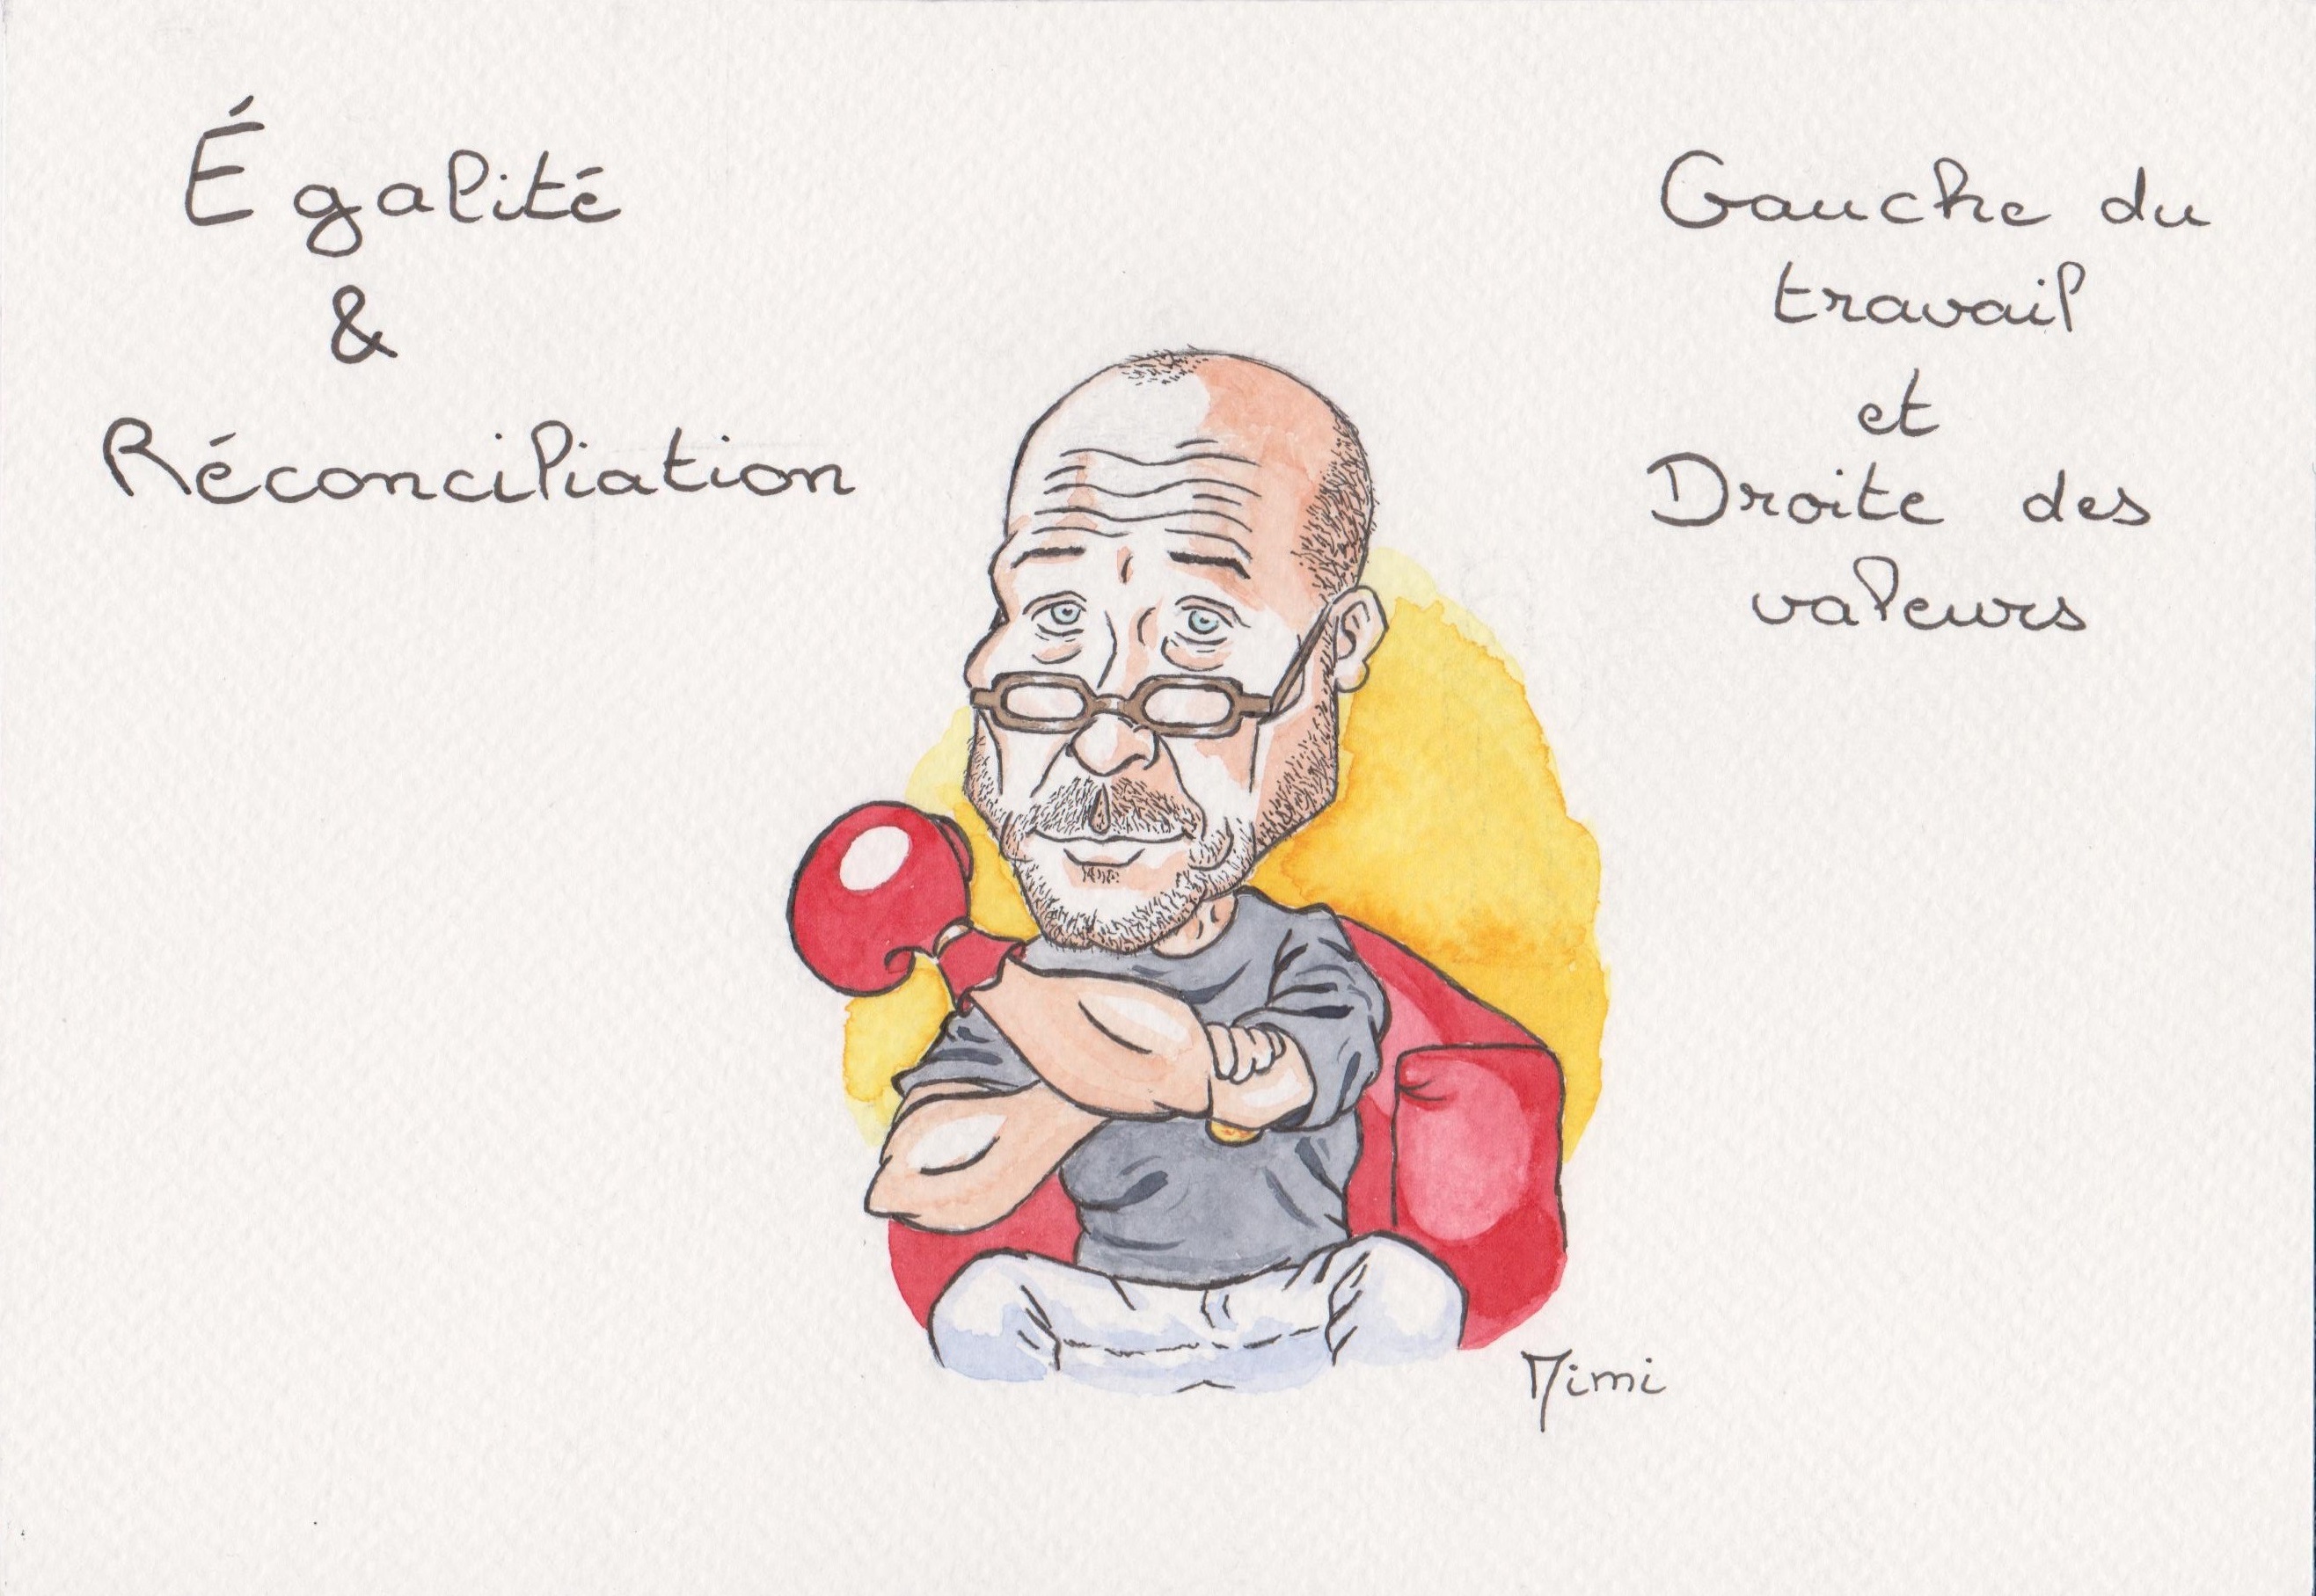 Égalité
&
Réconciliation
Gauche du
travail
et
Droite des
valeurs
Mimi